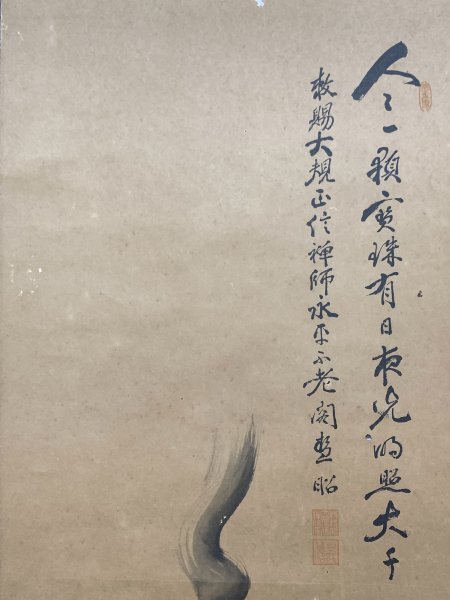 人々一顆寶珠有日夜光明照大千
敕賜大規正信禅師永平不老閣慧昭